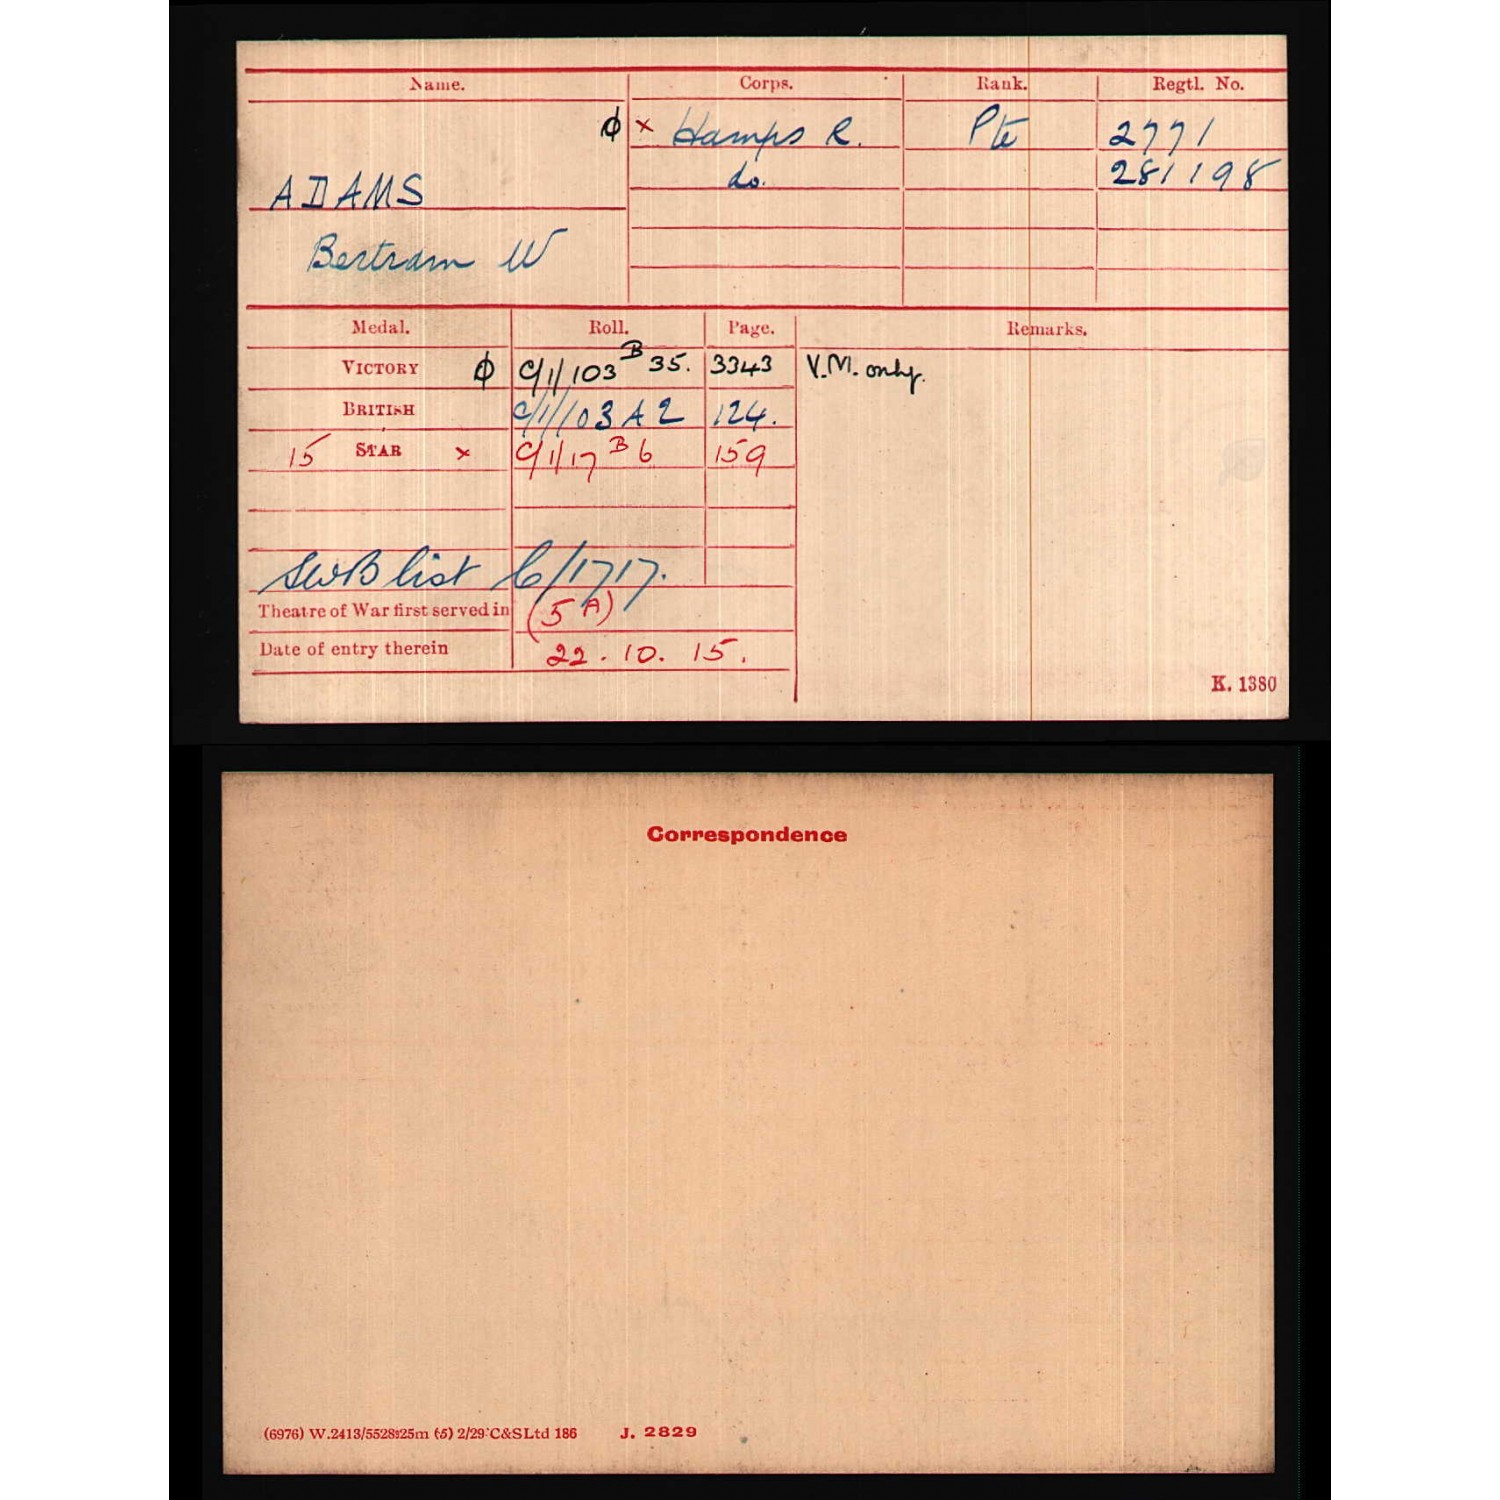 Name. Corps. Rank. Regtl. No.
ϕ × Hamps R. Pte 2771
ADAMS do. 281198
Bertram W
Medal. Roll. Page. Remarks.
VICTORY ϕ C/1/103 B 35. 3343 V.M. only.
BRITISH C/1/103 A 2 124.
15 STAR × C/1/17 B 6 159
SWB list C/1717.
Theatre of War first served in (5 A)
Date of entry therein 22. 10. 15.
K. 1380
Correspondence
(6976) W.2413/5528 25m (5) 2/29 C&SLtd 186 J. 2829